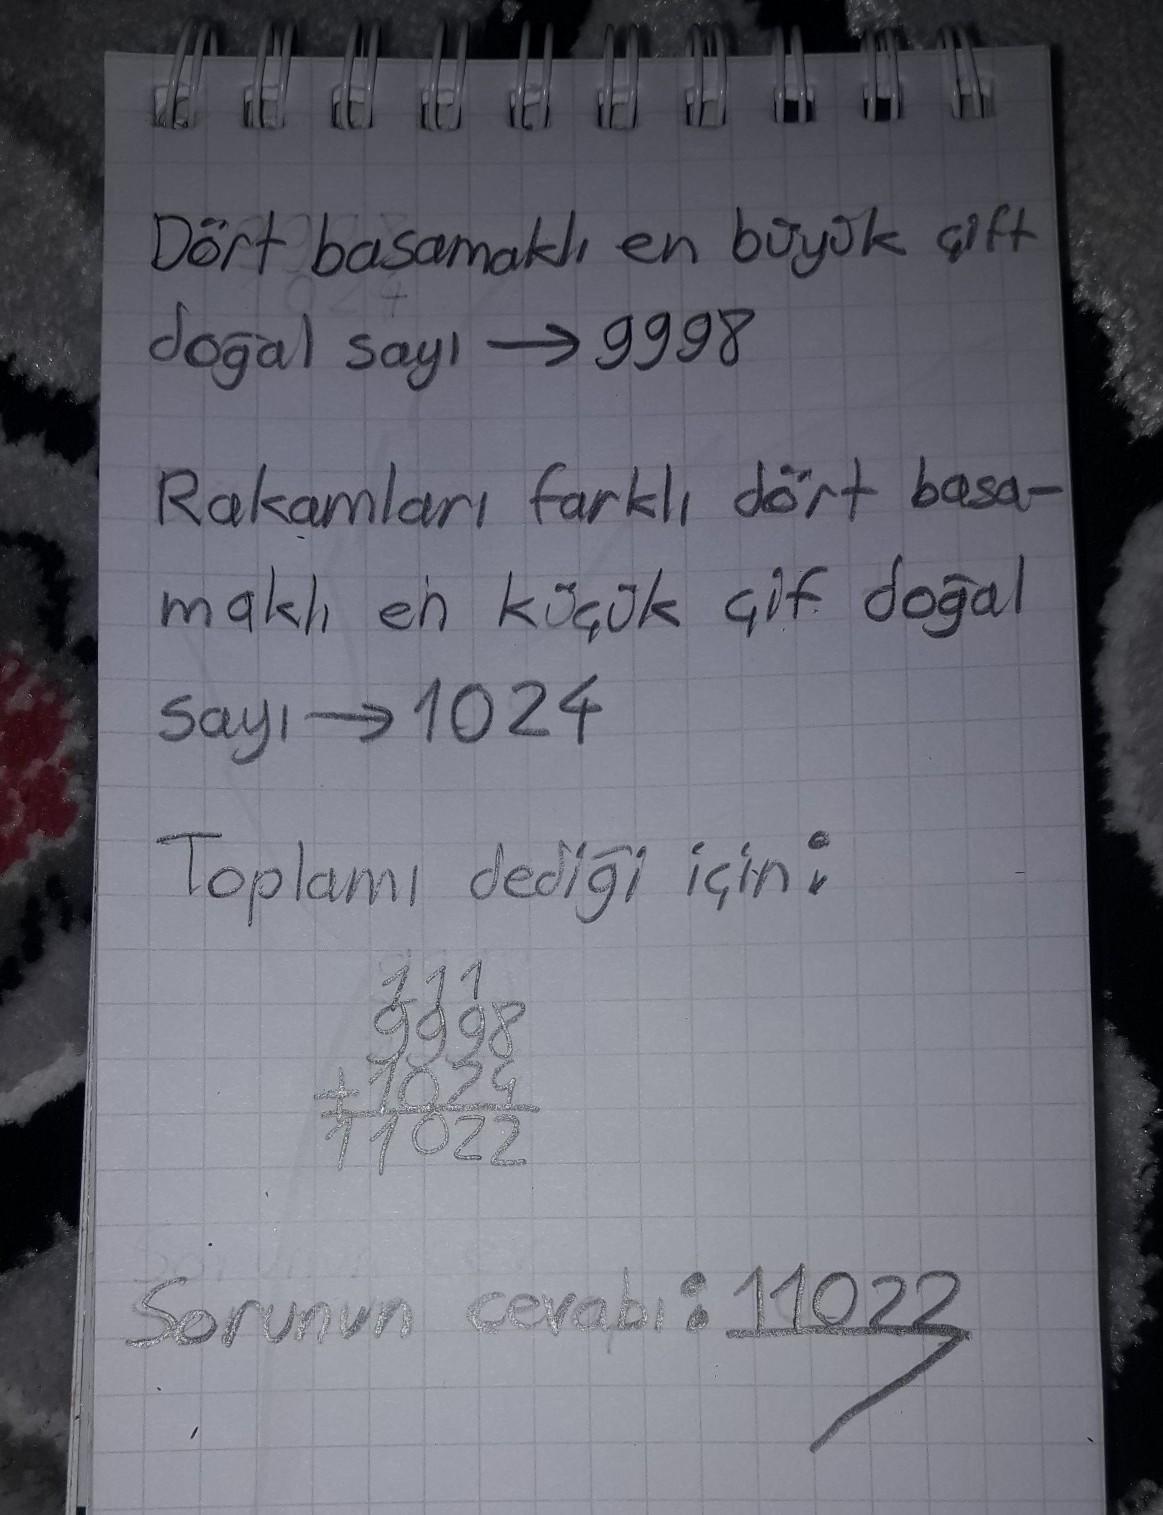 Dört basamaklı en büyük çift
doğal sayı → 9998
Rakamları farklı dört basa-
maklı en küçük çif doğal
sayı → 1024
Toplamı dediği için:
111
9998
+1024
11022
Sorunun cevabı: 11022